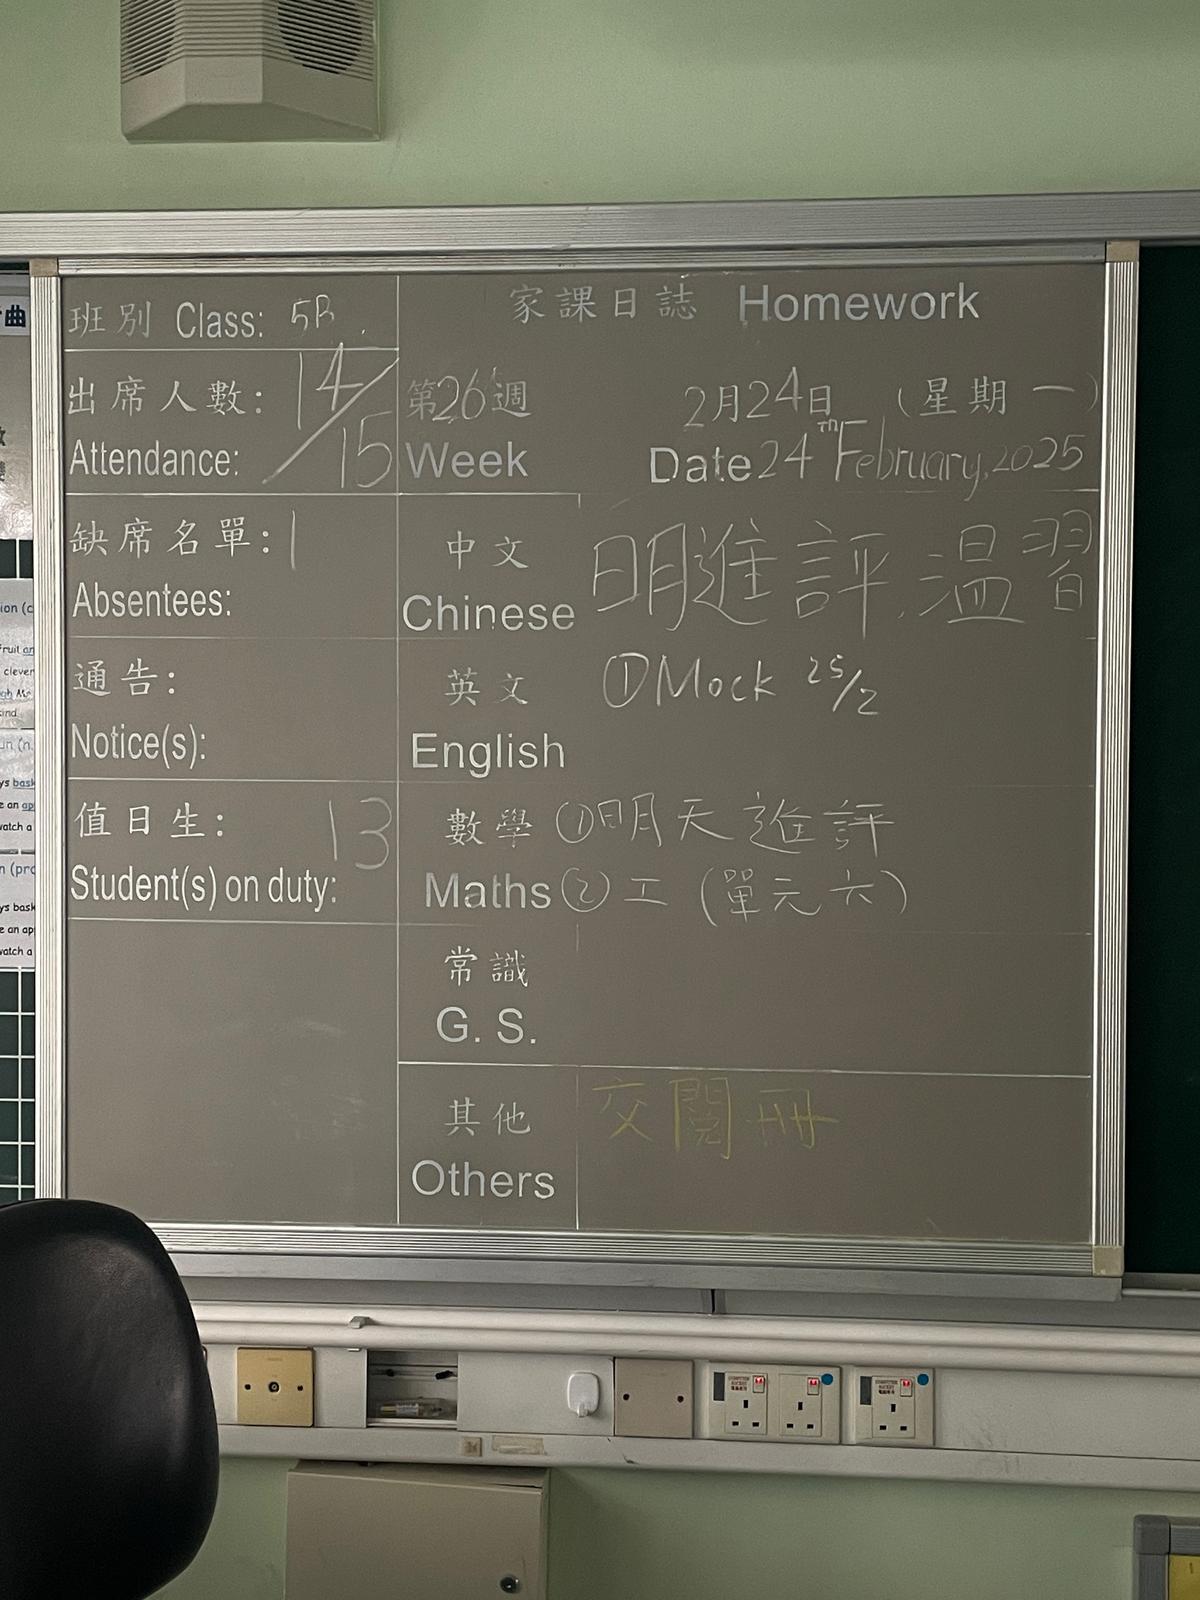 班別 Class: 5B
出席人數: 14/15
Attendance:
缺席名單: 1
Absentees:
通告:
Notice(s):
值日生: 13
Student(s) on duty:
家課日誌 Homework
第26週 2月24日 (星期一)
Week Date 24th February, 2025
中文 明進評,溫習
Chinese
英文 ①Mock 25/2
English
數學 ①明天進評
Maths ②工(單元六)
常識
G. S.
其他 交閱冊
Others
曲
fruit
clever
ys bask
e an ap
watch a
ys bask
e an ap
watch a